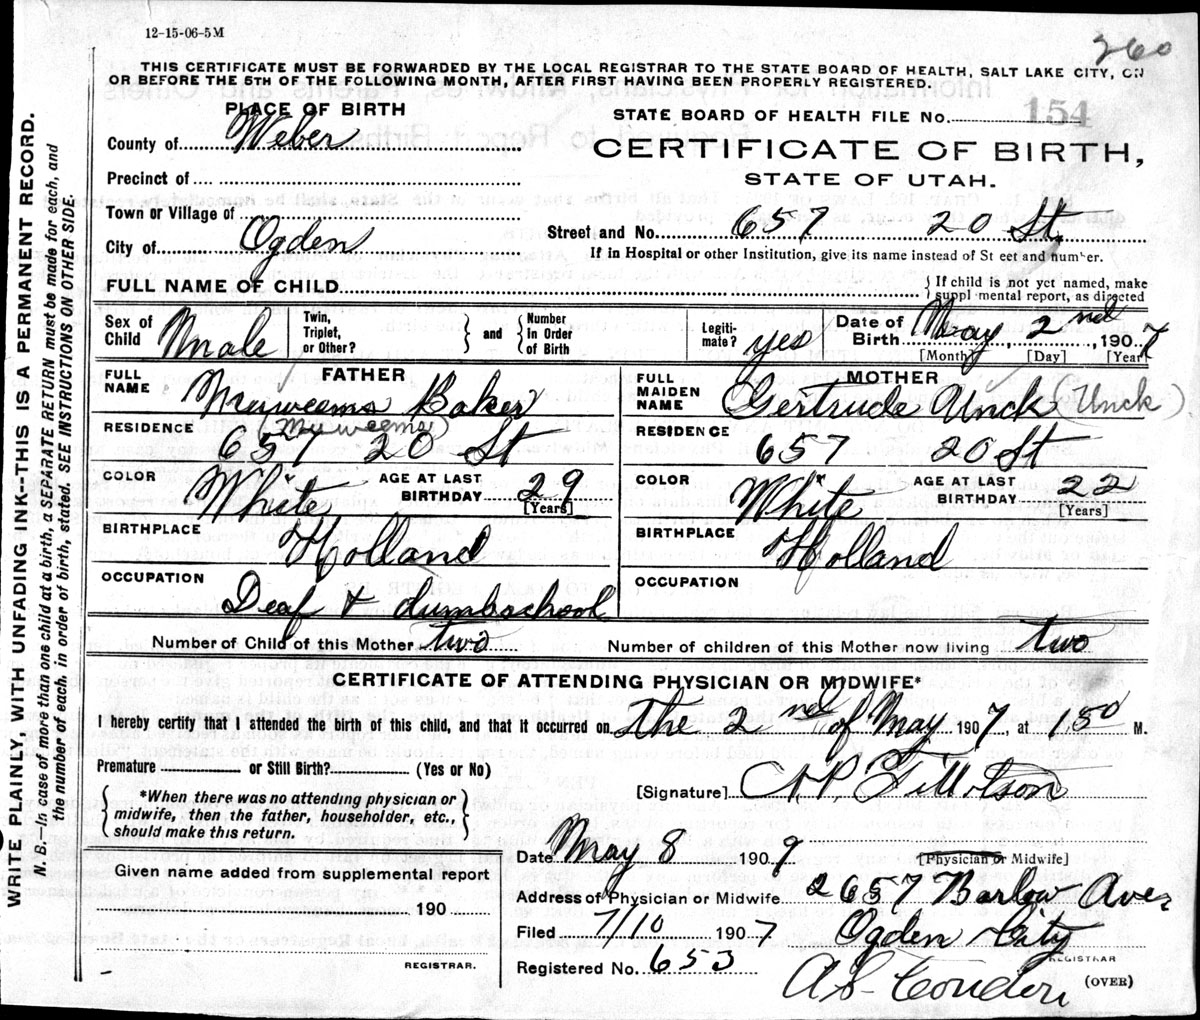 12-15-06-5M
260
THIS CERTIFICATE MUST BE FORWARDED BY THE LOCAL REGISTRAR TO THE STATE BOARD OF HEALTH, SALT LAKE CITY, ON
OR BEFORE THE 5TH OF THE FOLLOWING MONTH, AFTER FIRST HAVING BEEN PROPERLY REGISTERED.
WRITE PLAINLY, WITH UNFADING INK--THIS IS A PERMANENT RECORD.
N. B.—In case of more than one child at a birth, a SEPARATE RETURN must be made for each, and
the number of each, in order of birth, stated. SEE INSTRUCTIONS ON OTHER SIDE.
PLACE OF BIRTH
County of Weber
Precinct of
Town or Village of
City of Ogden
STATE BOARD OF HEALTH FILE No. 154
CERTIFICATE OF BIRTH,
STATE OF UTAH.
Street and No. 657 20 St.
If in Hospital or other Institution, give its name instead of St eet and number.
FULL NAME OF CHILD
If child is not yet named, make
suppl mental report, as directed
Sex of Child Male
Twin, Triplet, or Other?
and
Number In Order of Birth
Legiti-mate? yes
Date of Birth May 2nd, 1907
[Month] [Day] [Year]
FATHER
FULL NAME Baker
RESIDENCE 657 20 St
COLOR White
AGE AT LAST BIRTHDAY 29
[Years]
BIRTHPLACE Holland
OCCUPATION Deaf & dumb school
MOTHER
FULL MAIDEN NAME Gertrude Unck Unck)
RESIDENCE 657 20 St
COLOR White
AGE AT LAST BIRTHDAY 22
[Years]
BIRTHPLACE Holland
OCCUPATION
Number of Child of this Mother two
Number of children of this Mother now living two
CERTIFICATE OF ATTENDING PHYSICIAN OR MIDWIFE*
I hereby certify that I attended the birth of this child, and that it occurred on the 2nd of May 1907, at 1.50 M.
Premature or Still Birth? (Yes or No)
*When there was no attending physician or
midwife, then the father, householder, etc.,
should make this return.
[Signature] Tillotson
[Physician or Midwife]
Given name added from supplemental report
190
REGISTRAR.
Date May 8 1909
Address of Physician or Midwife 2657 Barlow Ave
Ogden City
Filed 7/10 1907
REGISTRAR
Registered No. 653
(OVER)